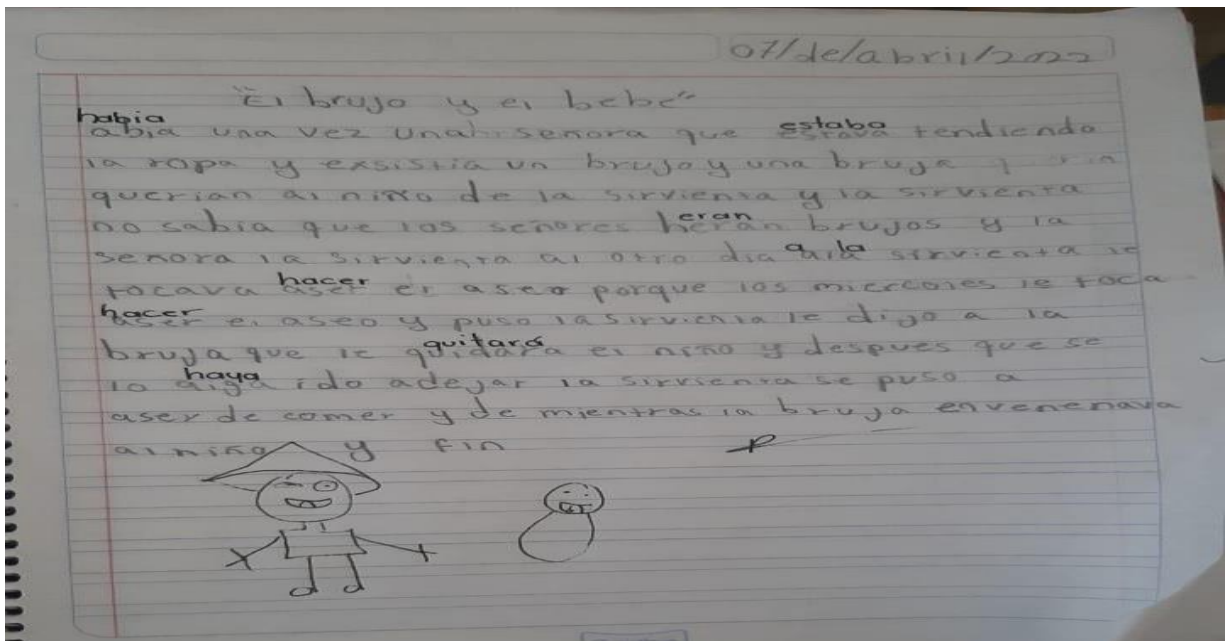 07/de/abril/2022
"El brujo y el bebe"
habia estaba
abia una vez una señora que estava tendiendo
la ropa y exsistia un brujo y una bruja y
querian al niño de la sirvienta y la sirvienta
eran
no sabia que los señores heran brujos y la
a la
senora la sirvienta al otro dia sirvienta le
hacer
tocava aser el aseo porque los miercoles le toca
hacer
aser el aseo y puso la sirvienta le dijo a la
quitara
bruja que le quidara el niño y despues que se
haya
lo aiga ido adejar la sirvienta se puso a
aser de comer y de mientras la bruja envenenava
al niño y fin